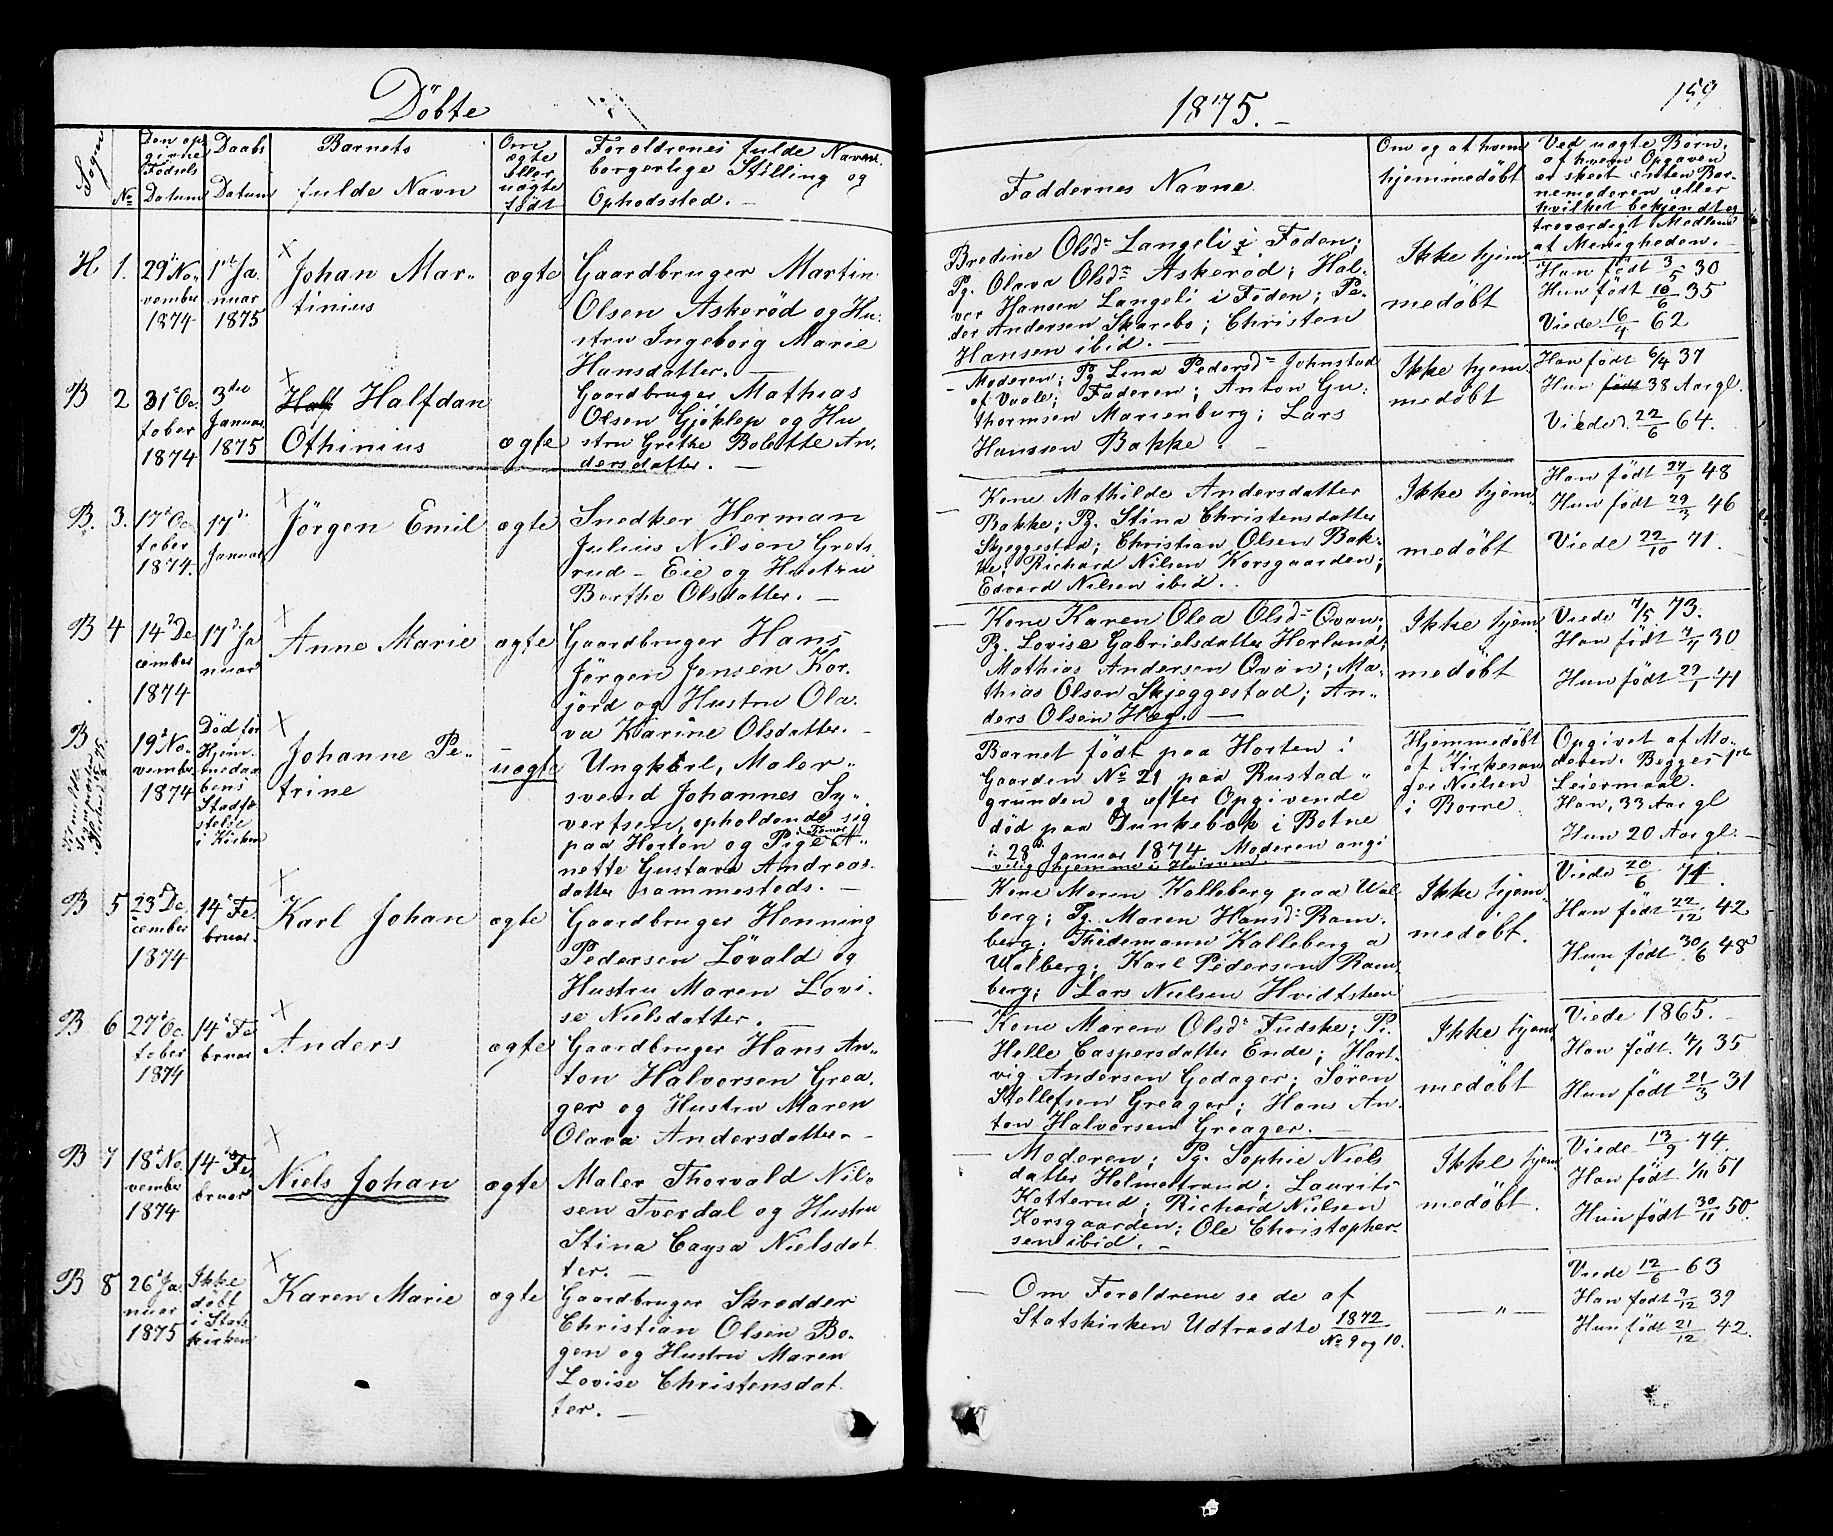 Döbte
1875.
159
Sogn
No
Den op
givne
Födsels
Datum
Daabs
Datum
Barnets
fulde Navn
Om
ægte
eller
uægte
födt
Forældrenes fulde Navne
borgerlige Stilling og
Opholdssted. —
Faddernes Navne
Om og at hvem
hjemmedöbt
Ved uægte Børn,
af hvem Opgaven
er skeet enten Bar-
nemoderen eller
hvilket bekjendt og
troværdigt Medlem
at Menigheden.
H. 1.
29d No-
vember
1874
1ste Ja
nuar
1875
Johan Mar-
tinius
ægte
Gaardbruger Martin
Olsen Askeröd og Hu-
stru Ingeborg Marie
Hansdatter. —
Bredine Olsd. Langeli i Foden;
Pg. Olava Olsd. Askeröd; Hal-
vor Hansen Langeli i Foden; Pe-
der Andersen Skarebo; Christen
Hansen ibid. —
Ikke hjem-
medöbt
Han födt 3/5 30
Hun födt 16/6 35
Viede 16/4 62
B 2
31d Oc-
tober
1874
3die
Januar
1875
Half Halfdan
Othinius
ægte
Gaardbruger Mathias
Olsen Gjöklep og Hu
stru Grethe Bolette An-
dersdatter. —
Moderen; Pg. Lina Pedersd. Johnstad
af Vaale; Faderen; Anton Gu-
thormsen Marienburg; Lars
Hanssen Bakke. —
Ikke hjem-
medöbt
Han födt 6/4 37
Hun födt 38 Aar gl.
Viede 22/6 64.
B. 3.
17d Oc-
tober
1874.
17d
Januar
Jörgen Emil
ægte
Snedker Herman
Julius Nilsen Grets-
rud – Eie og Hustru
Berthe Olsdatter. —
Kone Mathilde Andersdatter
Bakke; Pg. Stina Christensdatter
Skjeggestad; Christian Olsen Bak-
ke; Richard Nilsen Korsgaarden;
Edvard Nilsen ibid.
Ikke hjem-
medöbt
Han födt 27/9 48
Hun födt 29/3 46
Viede 22/10 71.
B 4
14d De
cember
1874
17d Ja
nuar
Anne Marie
ægte
Gaardbruger Hans
Jörgen Jensen Kor-
jörd og Hustru Ola-
va Karine Olsdatter. —
Kone Karen Olea Olsd. Ovan;
Pg. Lovise Gabrielsdatter Herland;
Mathias Andersen Ovan; Ma-
thias Olsen Skjeggestad; An-
ders Olsen Heg. —
Ikke hjem-
medöbt
Viede 7/5 73.
Han födt 7/4 30
Hun födt 29/1 41
B
19d No-
vember
1874
Död för
Hjem-
medaa-
bens
Stadfæ
stelse
i Kirken
Johanne Pe-
trine
uægte
Ungkarl, Maler-
svend Johannes Sy-
vertsen, opholdende sig
paa Horten og Pige A-
nette Gustava Andreas-
datter sammesteds. —
Barnet födt paa Horten i
Gaarden No 21 paa Rustad-
grunden og efter Opgivende
död paa Dunkebæk i Botne
i 28d Januar 1874. Moderen angi
velig hjemme i
Hjemmedöbt
af Kirkesan
ger Nielsen
i Borre.
Opgivet af Mo-
deren. Begges 1ste
Leiermaal.
Han, 33 Aar gl
Hun 20 Aar gl. —
B 5
23d De-
cember
1874
14d Fe
bruar.
Karl Johan
ægte
Gaardbruger Henning
Pedersen Lövald og
Hustru Maren Lovi-
se Nielsdatter. —
Kone Maren Kalleberg paa Wal
berg; Pg. Maren Hansd. Ram-
berg; Thidemann Kalleberg a
Walberg; Karl Pedersen Ram-
berg; Lars Nielsen Hvidtsteen
Ikke hjem-
medöbt.
Viede 20/6 74.
Han födt 22/12 42
Hun födt 30/6 48
B 6
27d Oc-
tober
1874
14d Fe
bruar
Anders
ægte
Gaardbruger Hans An-
ton Halvorsen Grea-
ger og Hustru Maren
Olava Andersdatter. —
Kone Maren Olsd. Fudske; Pi.
Helle Caspersdatter Ende; Hart-
vig Andersen Gedager; Sören
Stellefsen Greager; Hans An-
ton Halvorsen Greager. —
Ikke hjem-
medöbt
Viede 1865. —
Han födt 4/1 35
Hun födt 21/3 31
B 7
18d No-
vember
1874
14d Fe-
bruar
Niels Johan
ægte
Maler Thorvald Nil-
sen Tverdal og Hustru
Stina Caysa Nielsdat
ter. —
Moderen; Pg. Sophie Niels
datter Holmestrand; Laurits
Kotterud; Richard Nielsen
Korsgaarden; Ole Christopher-
sen ibid. —
Ikke hjem
medöbt.
Viede 13/9 74.
Han födt 1/11 51
Hun födt 30/11 50.
B 8
26d Ja-
nuar
1875
Ikke
döbt
i Stats
kirken
Karen Marie
ægte
Gaardbruger Skrædder
Christian Olsen Bo-
gen og Hustru Maren
Lovise Christensdat
ter. —
Om Forældrene se de af
Statskirken Udtraadte 1872
No 9 og 10.
— „ —
Viede 12/6 63
Han födt 9/12 39
Hun födt 21/12 42.